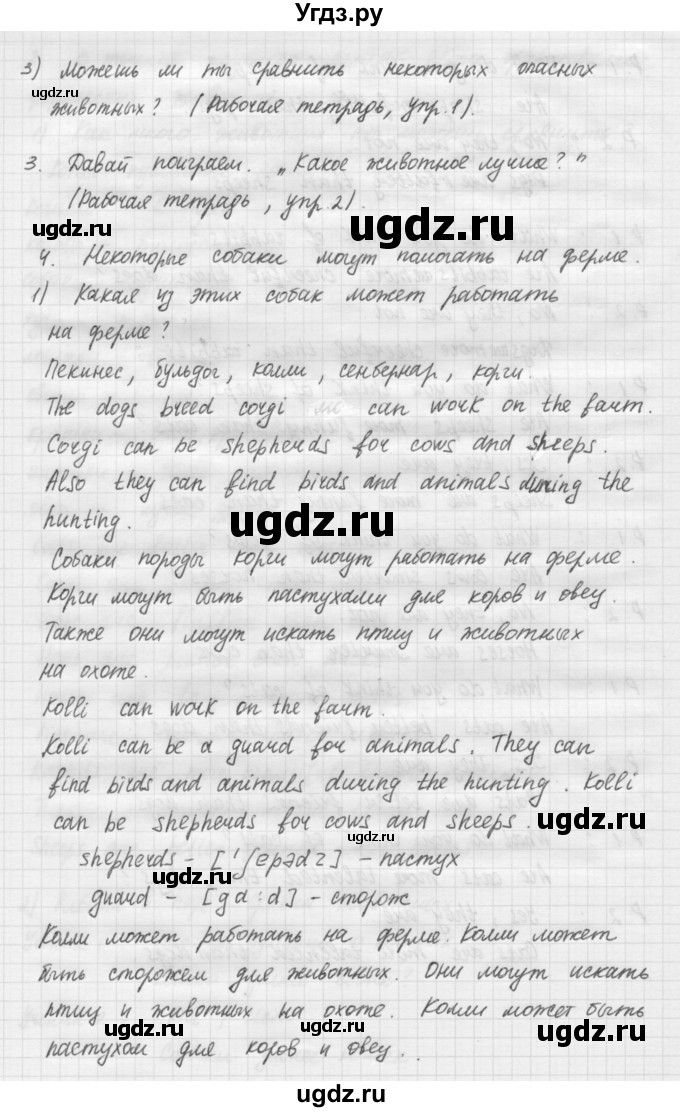 Угдз.ру
3) Можешь ли ты сравнить некоторых опасных
ugdz.ru
животных? (Рабочая тетрадь, упр.1).
ugdz.ru
3. Давай поиграем. „Какое животное лучше?"
(Рабочая тетрадь, упр.2).
ugdz.ru
ugdz.ru
4. Некоторые собаки могут помогать на ферме.
1) Какая из этих собак может работать
на ферме?
Пекинес, бульдог, колли, сенбернар, корги.
The dogs breed corgi can work on the farm.
Corgi can be shepherds for cows and sheeps.
Also they can find birds and animals during the
hunting.
ugdz.ru
Собаки породы корги могут работать на ферме.
Корги могут быть пастухами для коров и овец.
Также они могут искать птиц и животных
на охоте.
Kolli can work on the farm.
Kolli can be a guard for animals. They can
find birds and animals during the hunting. Kolli
can be shepherds for cows and sheeps.
ugdz.ru
shepherds - ['ʃepədz] - пастух
ugdz.ru
guard - [ga:d] - сторож
Колли может работать на ферме. Колли может
быть сторожем для животных. Они могут искать
птиц и животных на охоте. Колли может быть
ugdz.ru
ugdz.ru
ugdz.ru
пастухом для коров и овец.
ugdz.ru